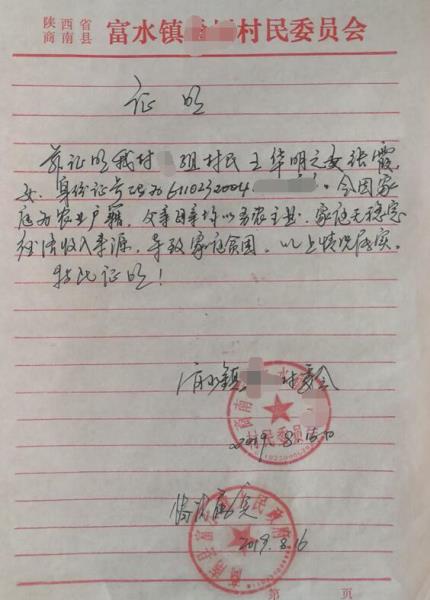 陕西省
商南县
富水镇 村民委员会
证明
兹证明我村 组村民王华明之女张霞,
女.身份证号码为6110232004 .全因家
庭为农业户籍,父亲母亲均以务农主业.家庭无稳定
经济收入来源,导致家庭贫困。以上情况属实。
特此证明!
富水镇 村委会
村民委员会
2019.8.15
情况属实
2019.8.16
第 页